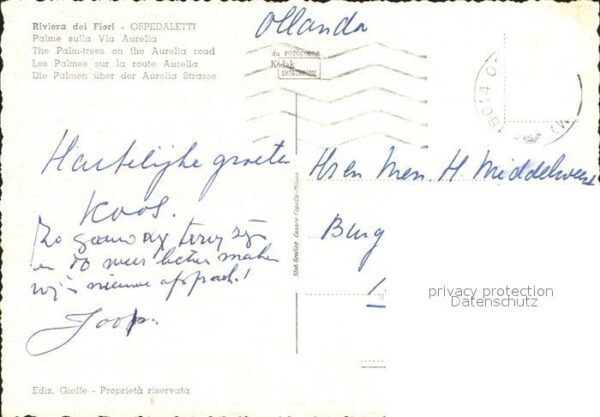 Riviera dei Fiori - OSPEDALETTI
Palme sulla Via Aurelia
The Palm-trees on the Aurelia road
Les Palmes sur la route Aurelia
Die Palmen über der Aurelia Strasse
Ollanda
da FOTOCOLOR
Kodak
EKTACHROME
18014 O
Hartelijke groeten
Koos.
Zo gauw wij terug zijn
en 80 weer beter maken
wij nieuwe afspraak!
Joop.
Hr en Mevr H Middelweerd
Burg
Stab. Grafico Cesare Capello - Milano
privacy protection
Datenschutz
Ediz. Gieffe - Proprietà riservata